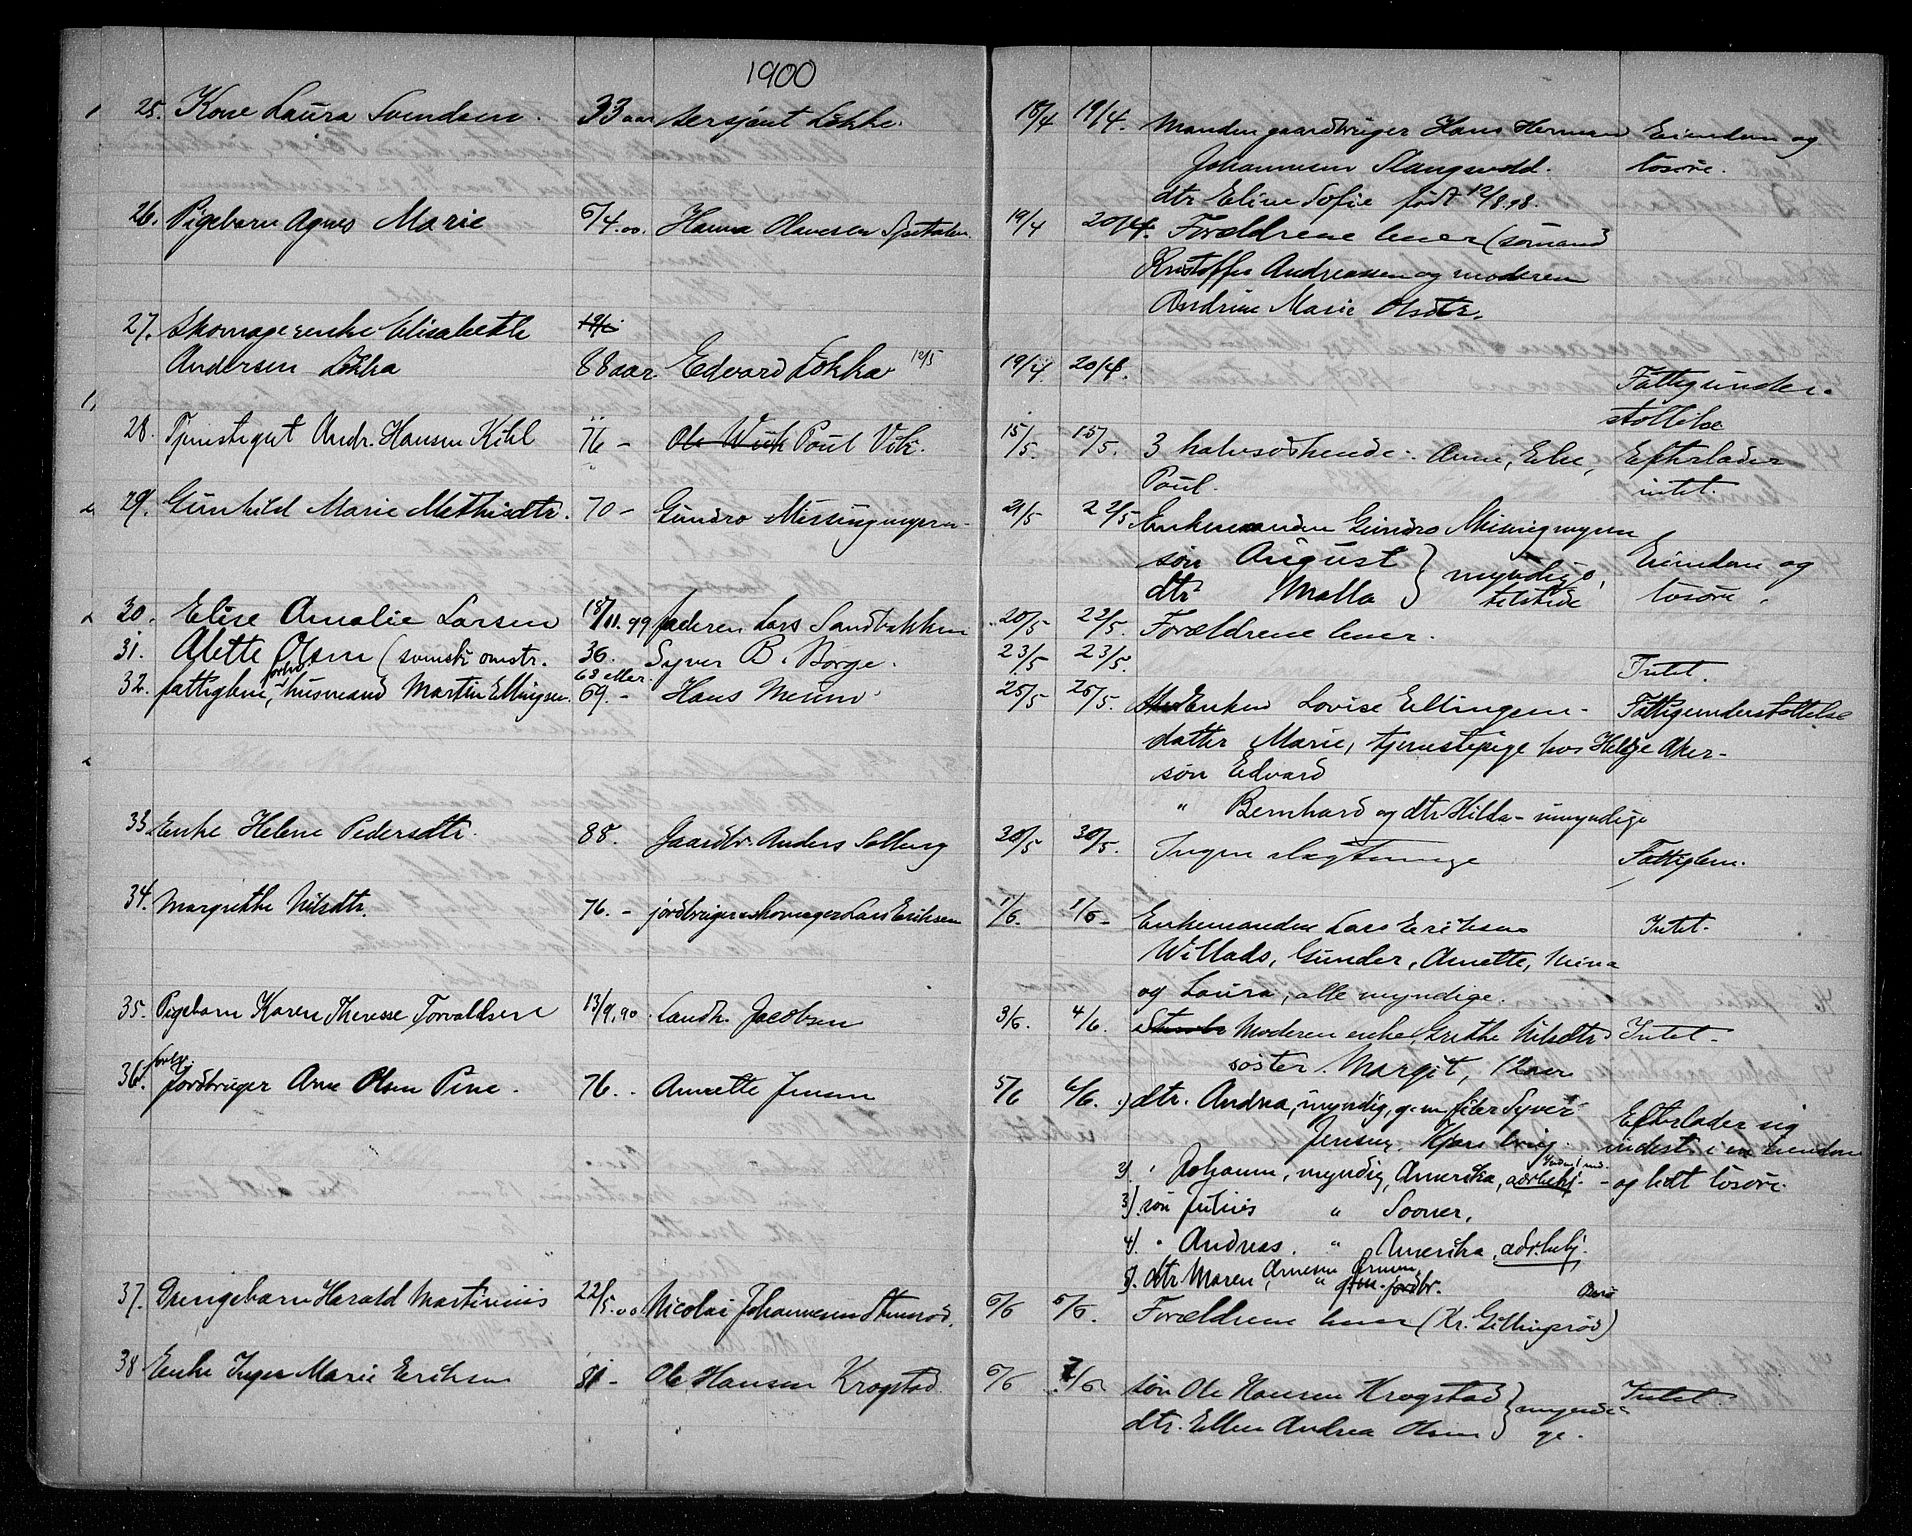 1900
25. Kone Laura Svendsen. 33 aar Sersjant Løkke. 18/4 19/4. Manden gaardbruger Hans Herman Eiendom og
Johannesen Slangsvold. løsøre.
dtr Eline Sofie født 12/8.98.
26. Pigebarn Agnes Marie 5/4.00. Hanna Olavesen Spetalen. 19/4 20/4. Forældrene lever (sømand
Kristoffer Andreassen og moderen
Andrine Marie Olsdtr.
27. Skomagerenke Elisabeth
Andersen Løkka 88 aar Edvard Løkka 12/5 19/4. 20/4. Fattigunder-
støttelse
28. Tjenstegut Andr. Hansen Kihl 76 - Ole Wiik Poul Vik. 15/5. 15/5. 3 halvsøskende. Anne, Else, Efterlader
Poul. intet.
29. Gunhild Marie Mathisdtr. 70 - Gundro Missingmyren 21/5 22/5 Enkemanden Gundro Missingmyren
søn August } myndige, Eiendom og
dtr Malla } tilstede løsøre.
30. Elise Amalie Larsen 18/11.99 faderen Lars Sandbakken 20/5 22/5. Forældrene lever.
31. Alette Olsen (svensk omstr. 36. Syver B. Borge. 23/5 23/5. Intet.
32. fattiglem, forhv. husmand Martin Ellingsen. 68 eller 69. - Hans Meum 25/5 25/5. Enken Lovise Ellingsen - Fattigunderstøttelse
datter Marie, tjenstepige hos Helge Aker-
søn Edvard
" Bernhard og dtr Hilda - umyndige
33. Enke Helene Pedersdtr. 88. Gaardbr. Anders Solberg 30/5 30/5. Ingen slægtninge Fattiglem.
34. Margrethe Nilsdtr. 76. - jordbruger skomager Lars Eriksen 1/6. 1/6 - Enkemanden Lars Eriksen Intet.
Willads, Gunder, Anette, Mina
og Laura, alle myndige.
35. Pigebarn Karen Theresse Torvaldsen 13/9.90. Landh. Jacobsen 3/6. 4/6. Moderen enke Grethe Nilsdtr Intet -
søster Margit, 12 aar
36. forhv. Jordbruger Arne Olsen Pine. 76. - Annette Jensen 5/6 6/6. 1) dtr. Andrea, myndig, gm filer Syver Efterlader sig
Jensen, Kjærsbrig. indest. i en eiendom
2) " Johanne, myndig, Amerika, adr. bekj. - og lidt løsøre.
3). søn Julius " Sooner,
4). " Andreas. " Amerika, adr. bekj.
5). dtr Maren, Arnesen " gm. jordbr.
37. Drengebarn Harald Martinius 22/5.00 Nicolai Johannesen Stenrød. 6/6 6/6. Forældrene lever (Kr. Gillingsrød)
38. Enke Inger Marie Eriksen 81 - Ole Hansen Krogstad 6/6 7/6 søn Ole Hansen Krogstad } myndi- Intet.
dtr. Ellen Andrea Olsen } ge.